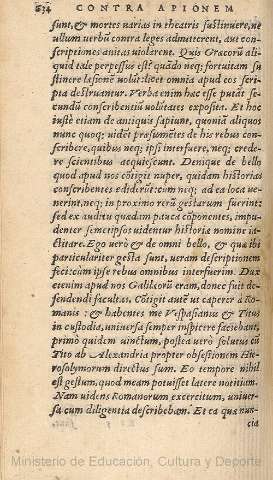 834 CONTRA APIONEM
sunt, & mortes varias in theatris sustinuere, ne
ullum verbū contra leges admitterent, aut con-
scriptiones avitas violarent. Quis Græcorū ali-
quid tale perpessus est? quādo neq; fortuitam su
stinere læsionē volūt: licet omnia apud eos scri-
pta destruantur. Verba enim hæc esse putāt se-
cundū conscribentiū volūtates exposita. Et hoc
iuste etiam de antiquis sapiunt, quoniā aliquos
nunc quoq; vidēt præsumētes de his rebus cons-
cribere, quibus neq; ipsi interfuere, neq; crede-
re scientibus acquiescunt. Denique de bello
quod apud nos cōtigit nuper, quidam historias
conscribentes ediderūt: cum neq; ad ea loca ve-
nerint, neq; in proximo rerū gestarum fuerint:
sed ex auditu quædam pauca cōponentes, impu-
denter semetipsos videntur historiæ nomine ia-
ctitare. Ego verò & de omni bello, & quæ ibi
particulariter gesta sunt, veram descriptionem
feci: cùm ipse rebus omnibus interfuerim. Dux
etenim apud nos Galilæorū eram, donec fuit de-
fendendi facultas. Cōtigit autē ut caperer à Ro-
manis: & habentes me Vespasianus & Titus
in custodia, universa semper inspicere faciebant,
primò quidem vinctum, postea verò solutus cū
Tito ab Alexandria propter obsessionem Hie-
rosolymorum directus sum. Eo tempore nihil
est gestum, quod meam potuisset latere notitiam.
Nam videns Romanorum exercitum, univer-
sa cum diligentia describebam. Et ea quæ nun-
cia
Ministerio de Educación, Cultura y Deporte